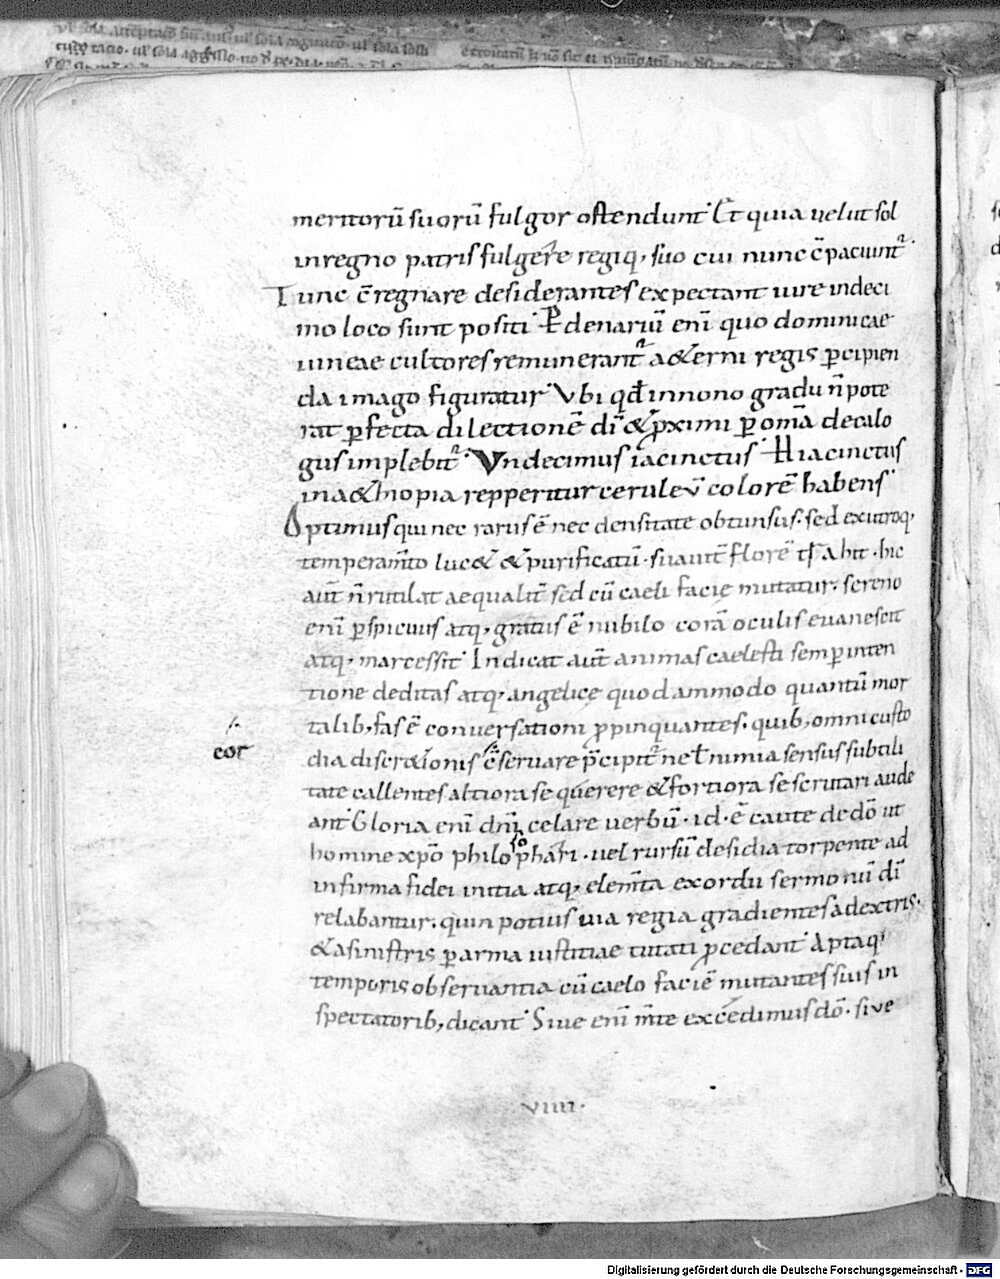 meritorū suorū fulgor ostendunt· Et quia velut sol
in regno patris fulgere regiq; suo cui nunc c̄paciunt᷑
Tunc c̄regnare desiderantes expectant iure undeci
mo loco sunt positi· P denariū eni᷑ quo dominicae
uineae cultores remunerant᷑ a&erni regis p̱cipien
da imago figuratur· Vbi qđ in nono gradu n̄ pote
rat p̱fecta dilectionē dī &p̱ximi p̱ omā decalo
gus implebit᷑· Vndecimus iacinctus· Hiacinctus
in a&hiopia repperitur ceruleū colorē habens·
Optimus qui nec rarus ē nec densitate obtunsus· sed ex utroq;
temperam̄to luc& &purificatū· suaut̄ florē tr̄ahit· hic
aut̄ n̄ rutilat aequalit̄ sed cū caeli facie mutatur· sereno
enī p̱spicuus atq; gratus ē nubilo corā oculis evanescit
atq; marcessit· Indicat aut̄ animas caelesti semp̱ inten
tione deditas atq; angelicę quodammodo quantū mor
talib; fas ē conversationi p̱pinquantes· quib; omni custo
dia discr&ionis c̄servare p̄cipit᷑ ne ł nimia sensus subtili
cor
tate callentes altiora se quęrere &fortiora se scrutari aude
ant· Gloria enī dnī celare verbū· id· ē caute de dō ut
homine xp̄o philosophari· vel rursū desidia torpente ad
infirma fidei initia atq; elem̄ta exordii sermonū dī
relabantur· quin potius uia regia gradientes a dextris·
&asinistris p̱ arma iustitiae tutati p̱cedant· Aptaq;
temporis observantia cū caelo faciē mutantes suis in
spectatorib; dicant· Sive enī m̄te excedimus dō· sive
viiii·
Digitalisierung gefördert durch die Deutsche Forschungsgemeinschaft - DFG